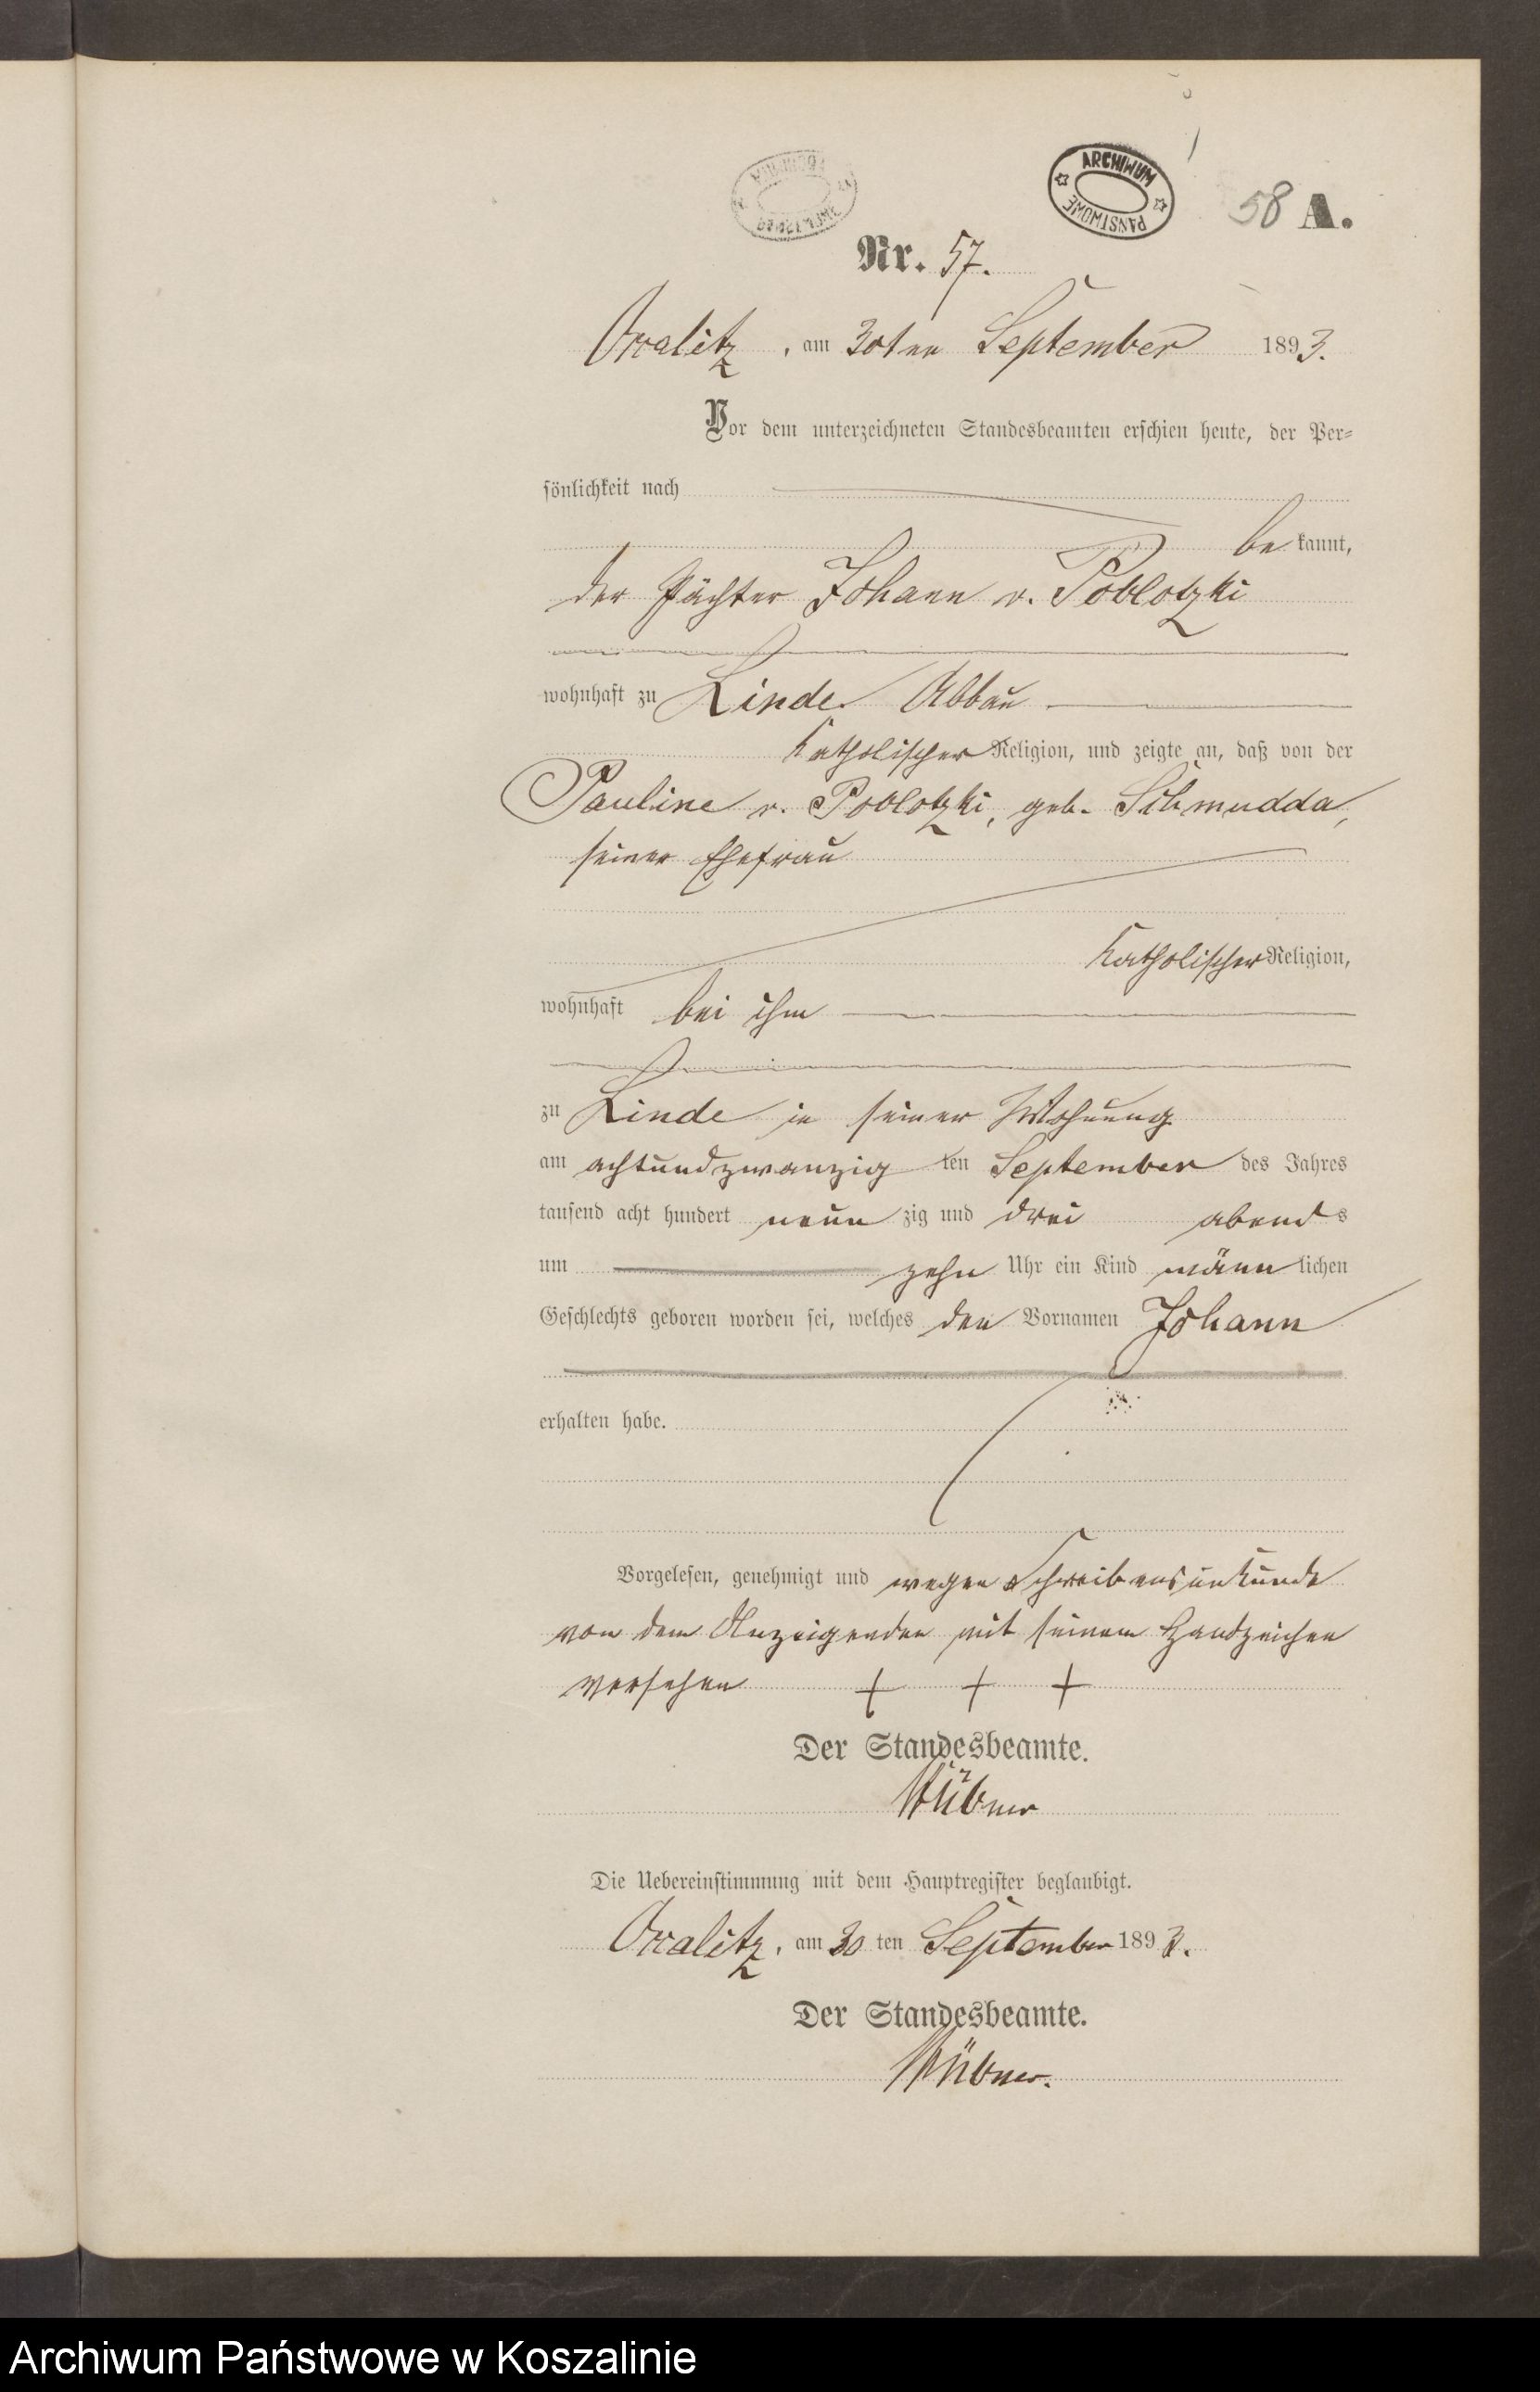 ARCHIWUM PAŃSTWOWE
58 A.
Nr. 57.
Oslalitz, am 30ten September 1893.
Vor dem unterzeichneten Standesbeamten erschien heute, der Per-
sönlichkeit nach
bekannt,
der Pächter Johann v. Poblotzki
wohnhaft zu Linde Abbau
katholischer Religion, und zeigte an, daß von der
Pauline v. Poblotzki, geb.
seiner Ehefrau
katholischer Religion,
wohnhaft bei ihm
zu Linde in seiner Wohnung
am achtundzwanzigten September des Jahres
tausend acht hundert neunzig und drei abends
um zehn Uhr ein Kind männlichen
Geschlechts geboren worden sei, welches den Vornamen Johann
erhalten habe.
Vorgelesen, genehmigt und wegen Schreibensunkunde
von dem Anzeigenden mit seinem Handzeichen
versehen + + +
Der Standesbeamte.
Die Uebereinstimmung mit dem Hauptregister beglaubigt.
am 30ten September 1893.
Der Standesbeamte.
Archiwum Państwowe w Koszalinie